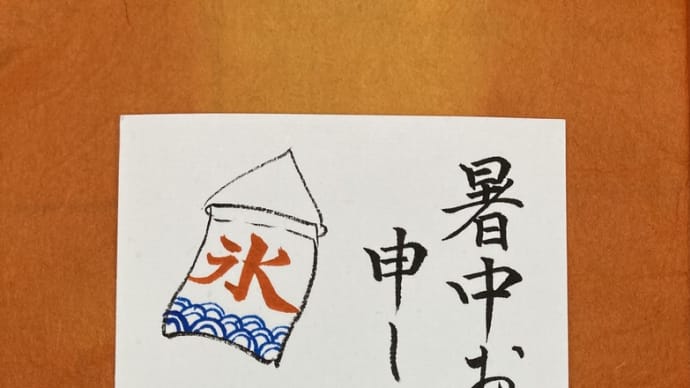 暑中お
申し
氷